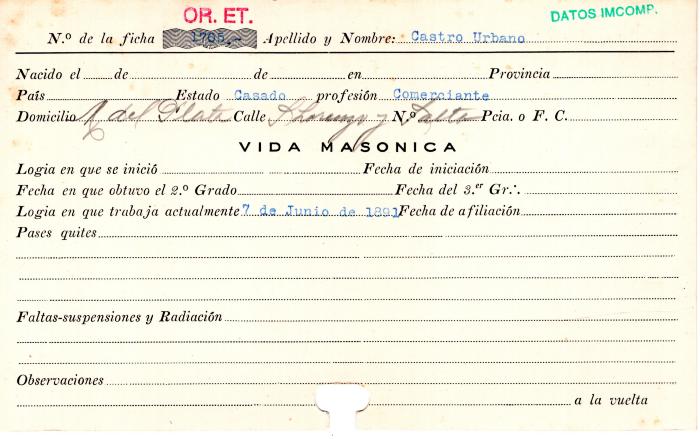 OR. ET.
DATOS IMCOMP.
N.º de la ficha 1765.- Apellido y Nombre: Castro Urbano
Nacido el de de en Provincia
País Estado Casado profesión Comerciante
Domicilio M del Plata Calle S Lorenzo y N.º Salta Pcia. o F. C.
VIDA MASONICA
Logia en que se inició Fecha de iniciación
Fecha en que obtuvo el 2.º Grado Fecha del 3.er Gr∴
Logia en que trabaja actualmente 7 de Junio de 1891 Fecha de afiliación
Pases quites
Faltas-suspensiones y Radiación
Observaciones
a la vuelta